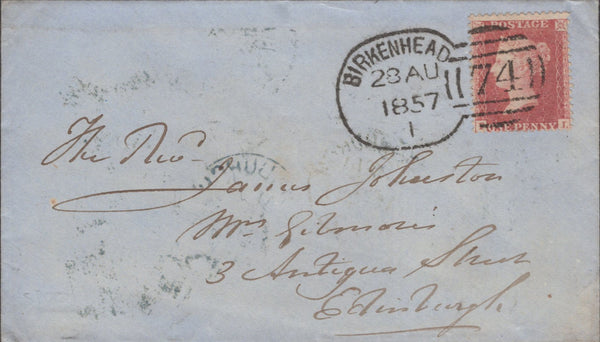 POSTAGE
BIRKENHEAD
28 AU
1857
1
74
ONE PENNY
L
The Revd
James Johnston
Mrs Gilmores
3 Antigua Street
Edinburgh